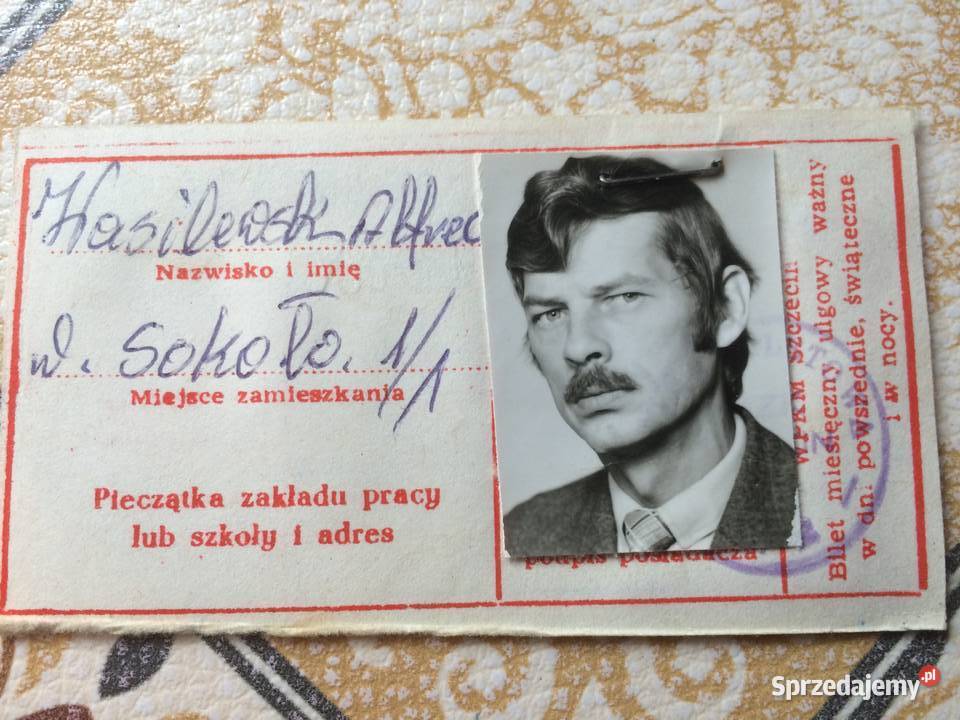 Wasilewski Alfred
Nazwisko i imię
ul. Sokoło. 1/1
Miejsce zamieszkania
Pieczątka zakładu pracy
lub szkoły i adres
podpis posiadacza
WPKM Szczecin
Bilet miesięczny ulgowy ważny
w dni powszednie, świąteczne
i w nocy.
Sprzedajemy.pl